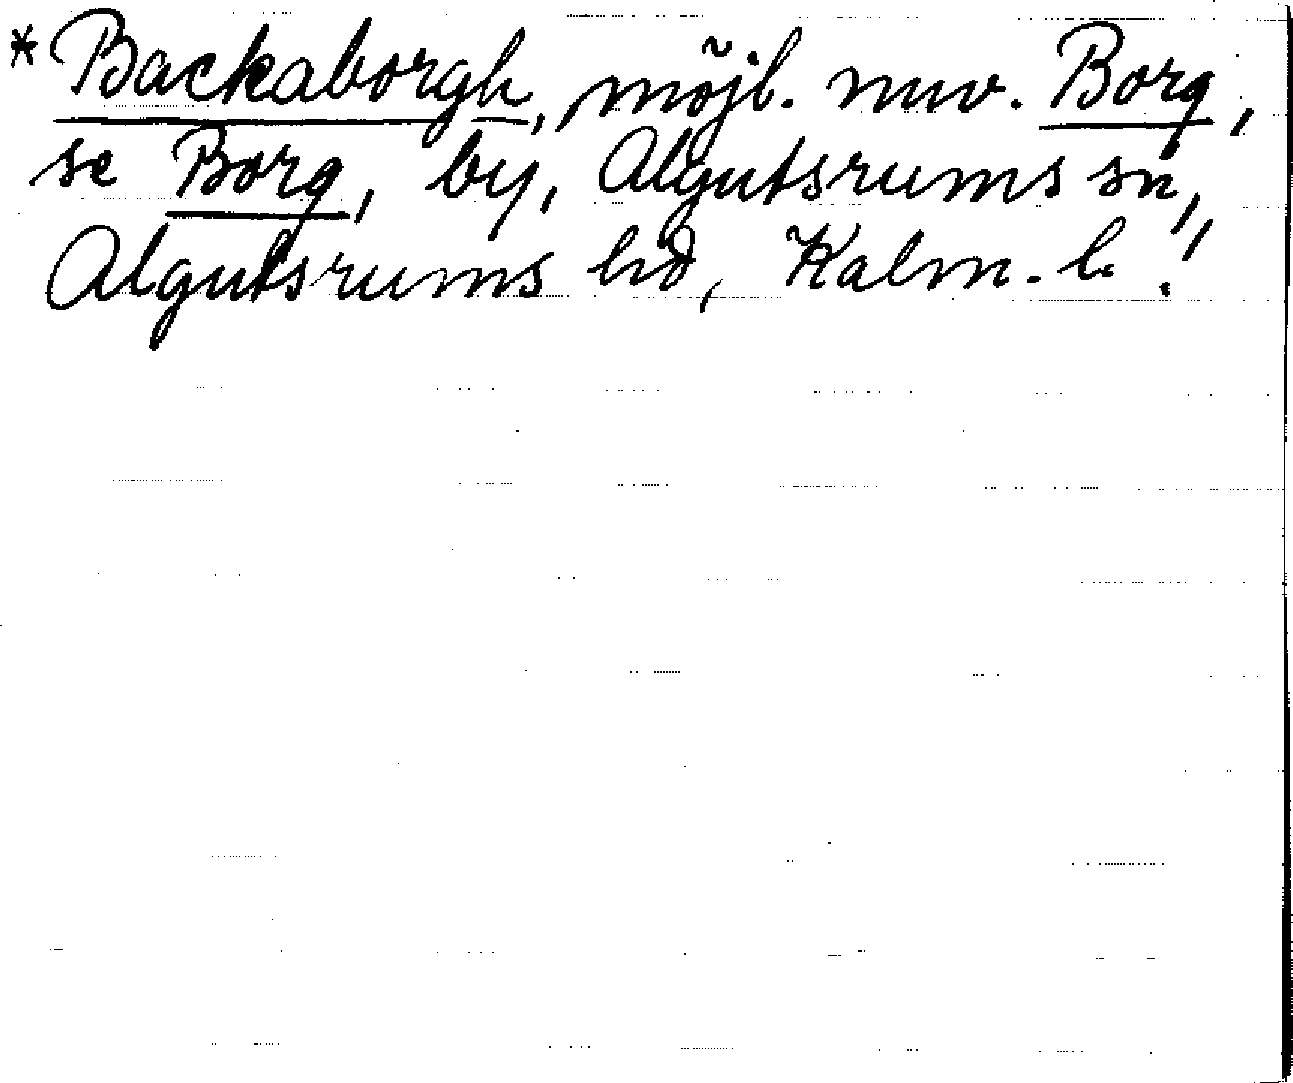 * Backaborgh, möjl. nuv. Borg,
se Borg, by, Algutsrums sn,
Algutsrums hd, Kalm. l.!